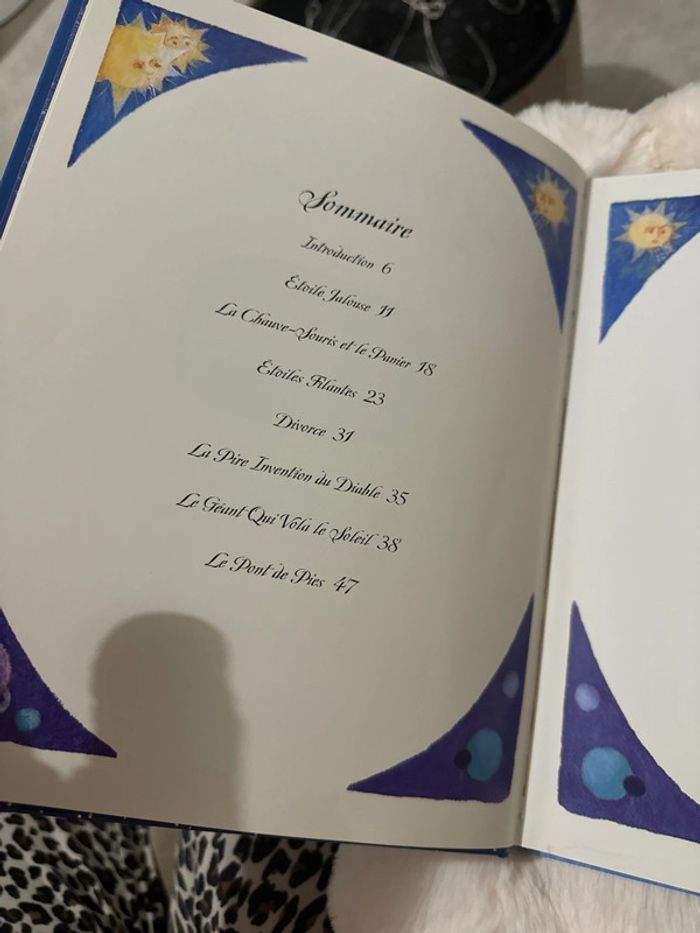 Sommaire
Introduction 6
Étoile Jalouse 11
La Chauve-Souris et le Panier 18
Étoiles Filantes 23
Divorce 31
La Pire Invention du Diable 35
Le Géant Qui Vola le Soleil 38
Le Pont de Pies 47